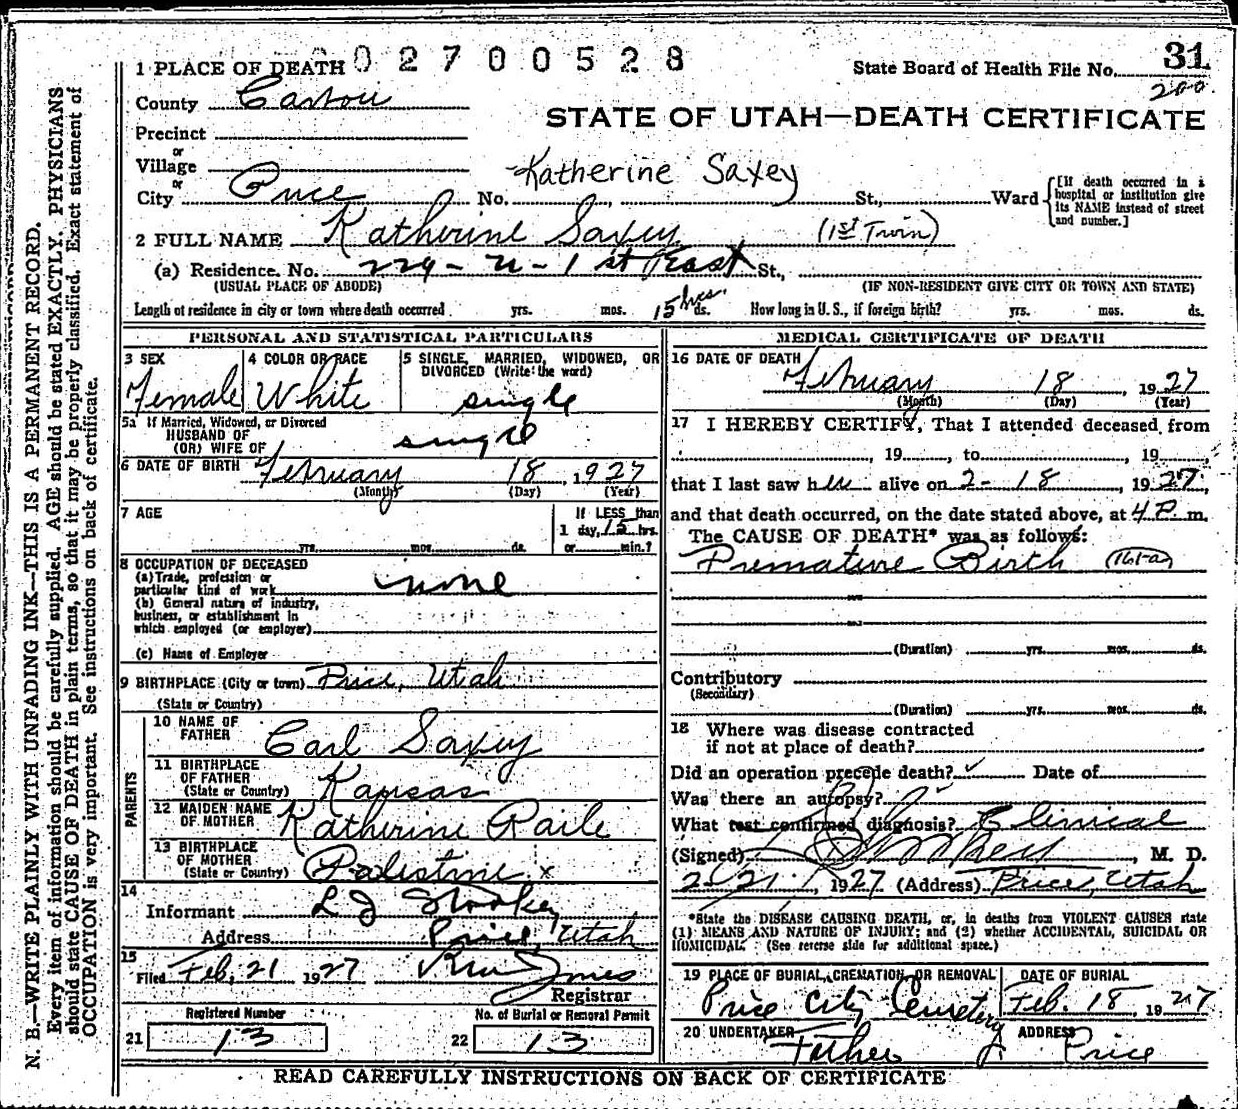 N. B.—WRITE PLAINLY WITH UNFADING INK—THIS IS A PERMANENT RECORD.
Every item of information should be carefully supplied. AGE should be stated EXACTLY. PHYSICIANS
should state CAUSE OF DEATH in plain terms, so that it may be properly classified. Exact statement of
OCCUPATION is very important. See instructions on back of certificate.
1 PLACE OF DEATH
0 2 7 0 0 5 2 8
State Board of Health File No. 31
200.
County Carbon
STATE OF UTAH—DEATH CERTIFICATE
Precinct
or
Village
Katherine Saxey
or
City Price No. St., Ward
[If death occurred in a
hospital or institution give
its NAME instead of street
and number.]
2 FULL NAME Katherine Saxey (1st Twin)
(a) Residence. No. 229 - N - 1st East St.,
(USUAL PLACE OF ABODE)
(IF NON-RESIDENT GIVE CITY OR TOWN AND STATE)
Length of residence in city or town where death occurred yrs. mos. 15 hrs. ds. How long in U. S., if foreign birth? yrs. mos. ds.
PERSONAL AND STATISTICAL PARTICULARS
3 SEX
Female
4 COLOR OR RACE
White
5 SINGLE, MARRIED, WIDOWED, OR
DIVORCED (Write the word)
single
5a If Married, Widowed, or Divorced
HUSBAND OF
(OR) WIFE OF
single
6 DATE OF BIRTH February 18, 1927
(Month) (Day) (Year)
7 AGE
yrs. mos. ds.
If LESS than
1 day, 15 hrs.
or min.?
8 OCCUPATION OF DECEASED
(a) Trade, profession or
particular kind of work none
(b) General nature of industry,
business, or establishment in
which employed (or employer)
(c) Name of Employer
9 BIRTHPLACE (City or town) Price, Utah
(State or Country)
PARENTS
10 NAME OF
FATHER Carl Saxey
11 BIRTHPLACE
OF FATHER
(State or Country) Kansas
12 MAIDEN NAME
OF MOTHER Katherine Raile
13 BIRTHPLACE
OF MOTHER
(State or Country) Palestine x
14
Informant L J Stookey
Address Price, Utah
15
Filed Feb, 21 1927
Registrar
Registered Number
21 13
No. of Burial or Removal Permit
22 13
MEDICAL CERTIFICATE OF DEATH
16 DATE OF DEATH
February 18, 1927
(Month) (Day) (Year)
17 I HEREBY CERTIFY, That I attended deceased from
, 19 , to , 19
that I last saw her alive on 2- 18, 1927,
and that death occurred, on the date stated above, at 4 P. m.
The CAUSE OF DEATH* was as follows:
Premature Birth (161-a)
(Duration) yrs. mos. ds.
Contributory
(Secondary)
(Duration) yrs. mos. ds.
18 Where was disease contracted
if not at place of death?
Did an operation precede death? Date of
Was there an autopsy?
What test confirmed diagnosis? Clinical
(Signed) , M. D.
2/21, 1927 (Address) Price, Utah
*State the DISEASE CAUSING DEATH, or, in deaths from VIOLENT CAUSES state
(1) MEANS AND NATURE OF INJURY; and (2) whether ACCIDENTAL, SUICIDAL OR
HOMICIDAL. (See reverse side for additional space.)
19 PLACE OF BURIAL, CREMATION, OR REMOVAL
Price City Cemetery
DATE OF BURIAL
Feb. 18 1927
20 UNDERTAKER
Father
ADDRESS
Price
READ CAREFULLY INSTRUCTIONS ON BACK OF CERTIFICATE